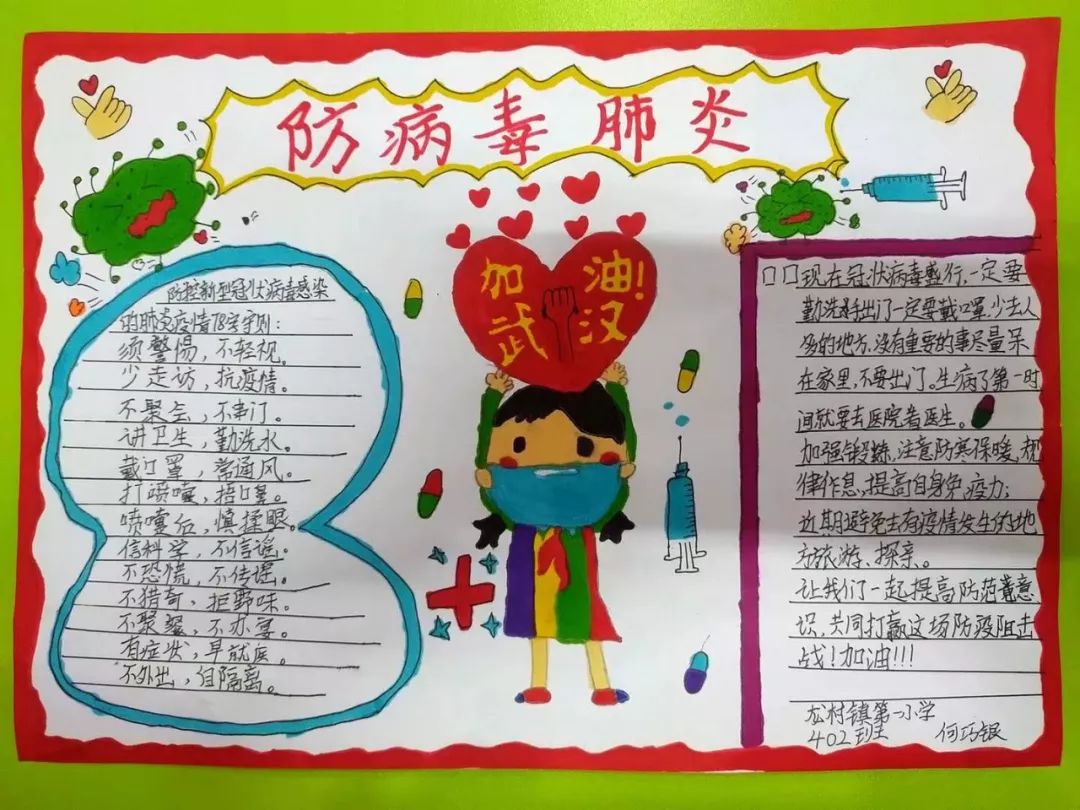 防病毒肺炎
加油!
武汉
防控新型冠状病毒感染
的肺炎疫情18字守则:
须警惕,不轻视。
少走访,抗疫情。
不聚会,不串门。
讲卫生,勤洗水。
戴口罩,常通风。
打喷嚏,捂口鼻。
喷嚏后,慎揉眼。
信科学,不信谣。
不恐慌,不传谣。
不猎奇,拒野味。
不聚餐,不办宴。
有症状,早就医。
不外出,自隔离。
现在冠状病毒盛行,一定要
勤洗手出门一定要戴口罩,少去人
多的地方,没有重要的事尽量呆
在家里,不要出门。生病了第一时
间就要去医院看医生。
加强锻炼,注意防寒保暖,规
律作息,提高自身免疫力;
近期避免去有疫情发生的地
方旅游、探亲。
让我们一起提高防范意
识,共同打赢这场防疫阻击
战!加油!!!
村镇第一小学
402班 何巧银